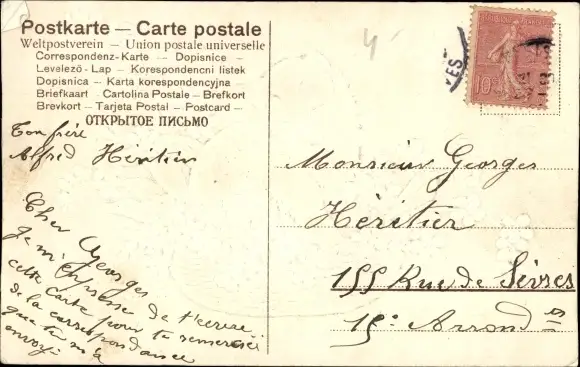 Postkarte — Carte postale
Weltpostverein — Union postale universelle
Correspondenz-Karte — Dopisnice —
Levelező-Lap — Korespondencni listek
Dopisnica — Karta korespondencyjna —
Briefkaart — Cartolina Postale — Brefkort
Brevkort — Tarjeta Postal — Postcard —
ОТКРЫТОЕ ПИСЬМО
Ton frère
Alfred Héritier
Cher Georges
Je m'empresse de t'écrire
cette carte pour te remercier
de la correspondance
que tu m'a
envoyé
10
Monsieur Georges
Héritier
155 Rue de Sèvres
15e Arrond es